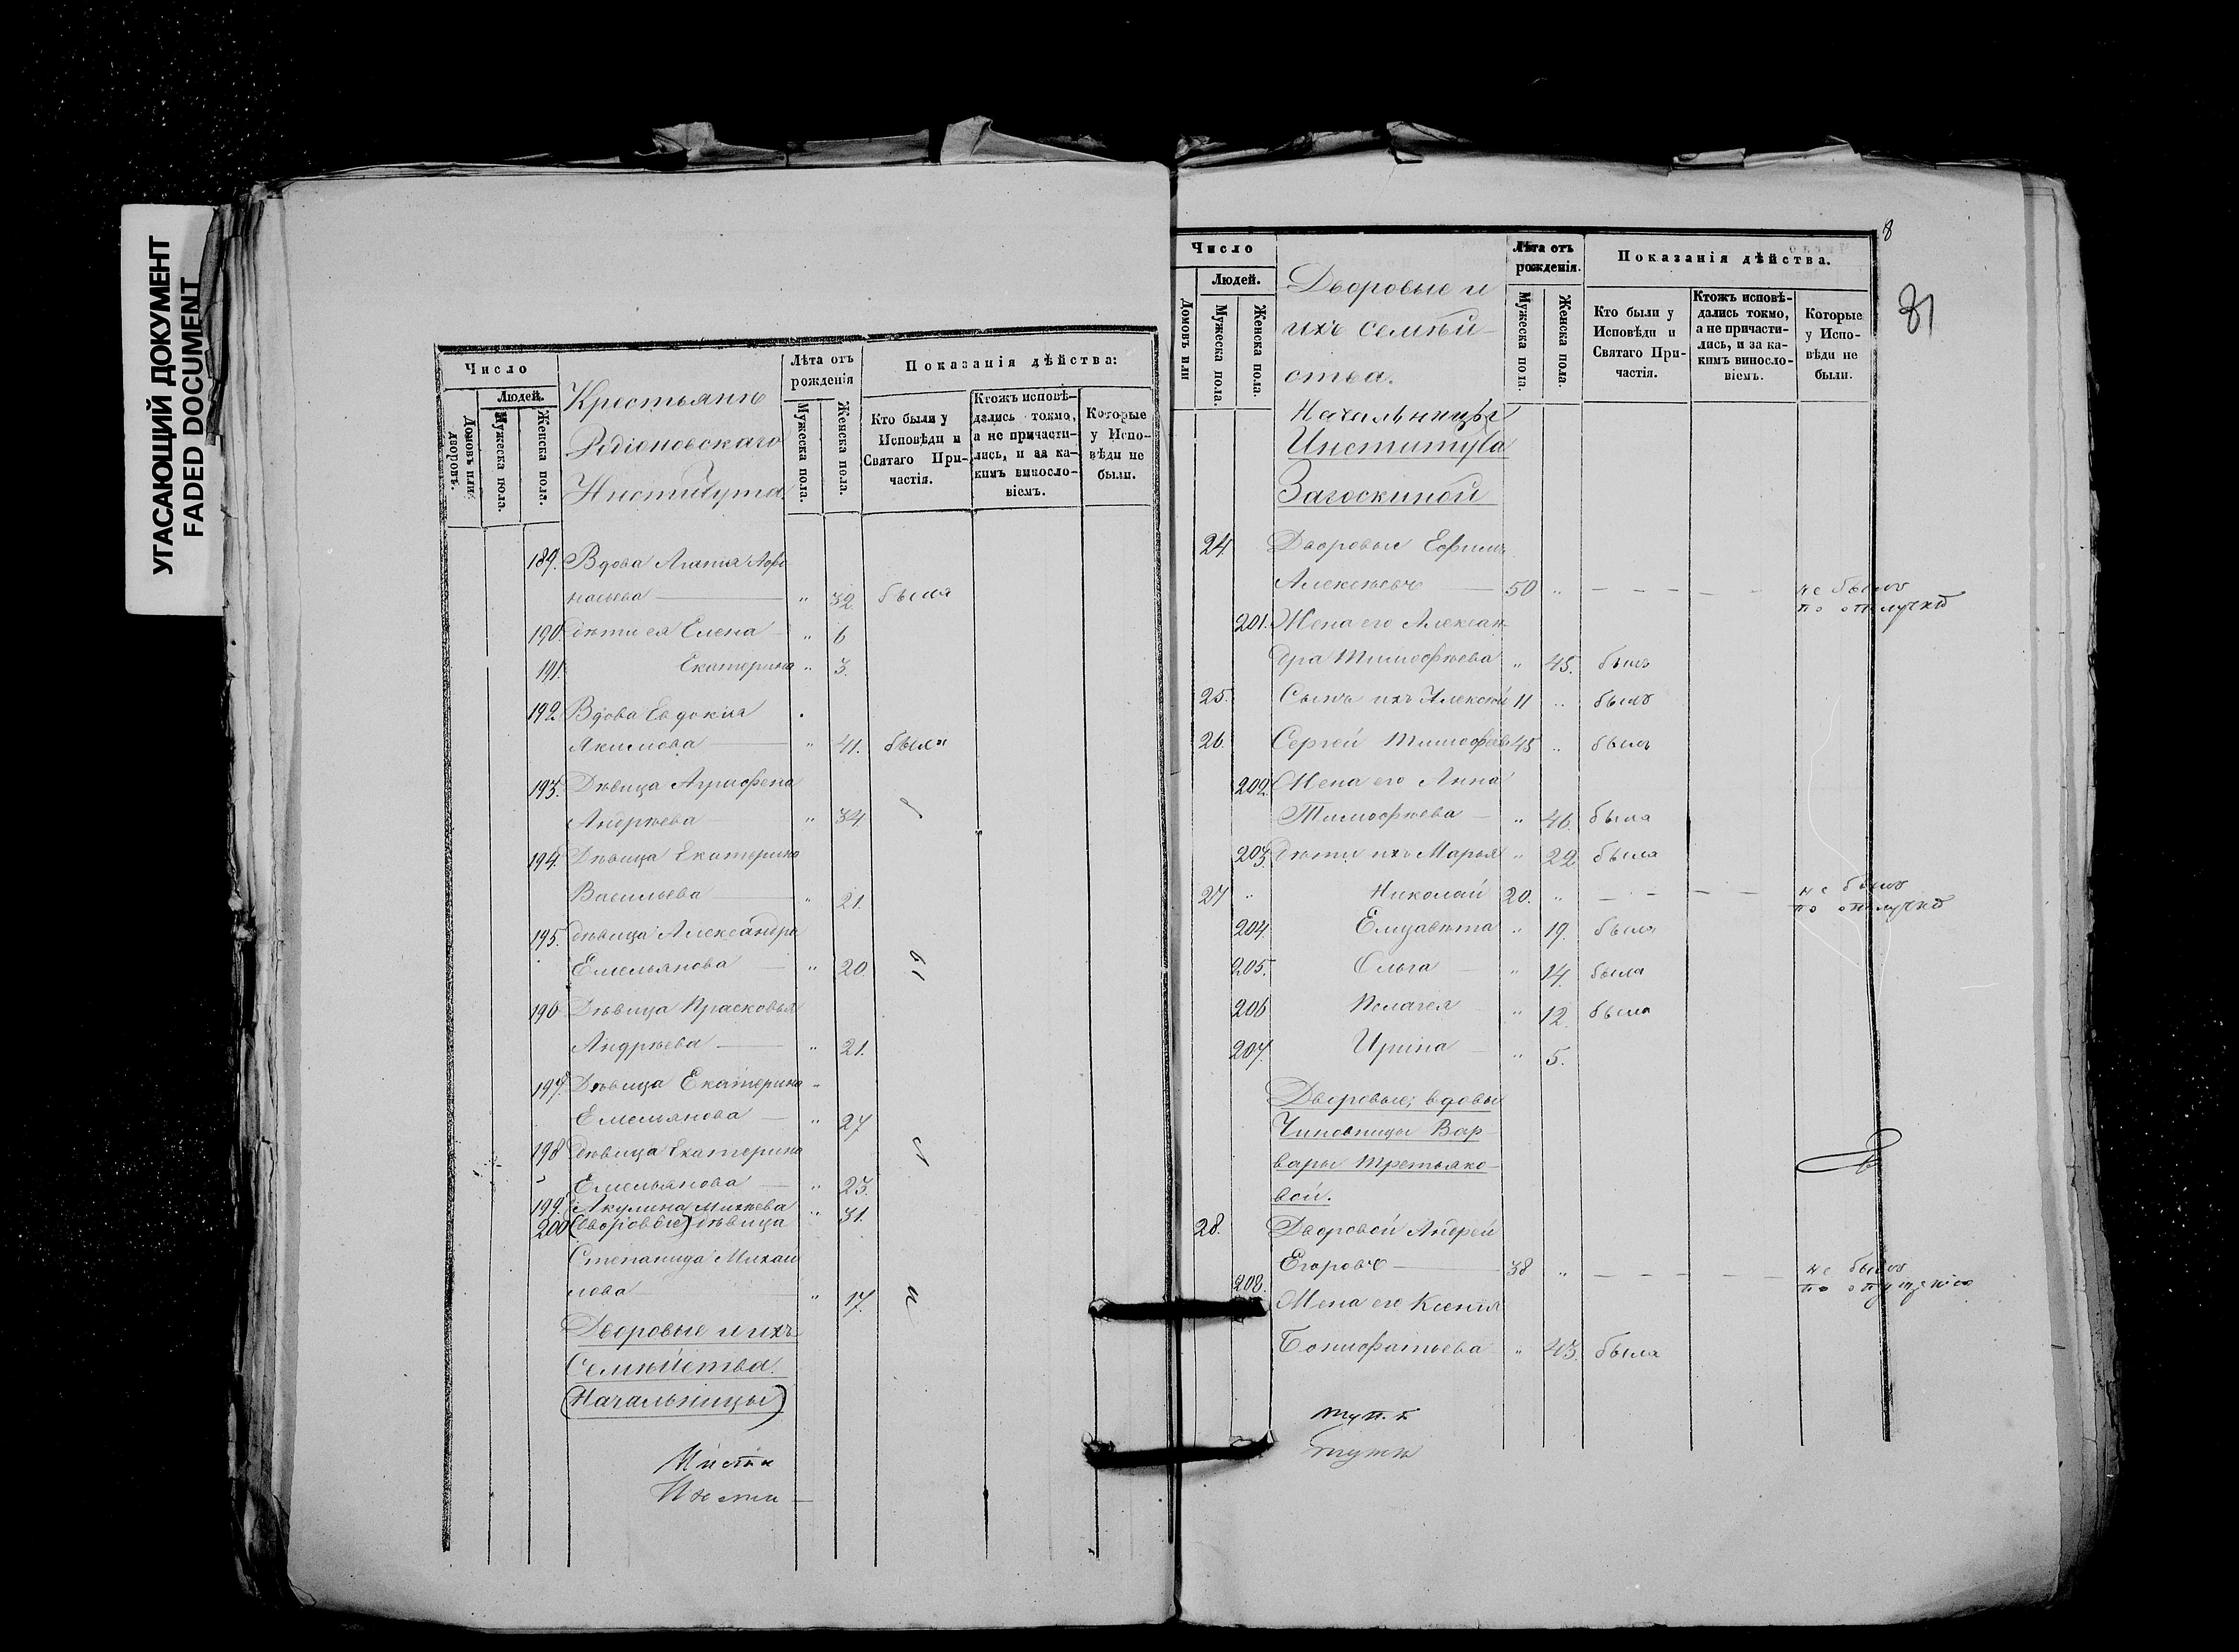 УГАСАЮЩИЙ ДОКУМЕНТ
FADED DOCUMENT
Число
Людей.
Домовъ или дворовъ.
Мужеска пола.
Женска пола.
Крестьяне
Родіоновскаго
Института
Лѣта отъ
рожденія
Мужеска пола.
Женска пола.
Показанія дѣйства:
Кто были у
Исповѣди и
Святаго При-
частія.
Ктожъ исповѣ-
дались токмо,
а не причасти-
лись, и за ка-
кимъ винosло-
віемъ.
Которые
у Испо-
вѣди не
были.
189. Вдова Агапія Афо
насьева — " 32. была
190 дѣти ея Елена " 6
191. Екатерина " 3.
192 Вдова Евдокія
Якимова — " 41. была
193. Дѣвица Аграфена
Андрѣева " 34.
194. Дѣвица Екатерина
Васильева — " 21.
195. дѣвица Александра
Емельянова — " 20. ы
196 Дѣвица Прасковья
Андрѣева — " 21.
197. Дѣвица Екатерина
Емельянова — " 27
198 дѣвица Екатерина
Емельянова — " 23. л
199. Акулина Михѣева " 31.
200 (дворовые) дѣвица
Степанида Михаи
лова " 17. и
Дворовые и ихъ
Семѣйства.
(Начальницы)
Инсти
Инсти —
8
81
Число
Людей.
Домовъ или
Мужеска пола.
Женска пола.
Дворовые и
ихъ семѣй-
ства.
Начальницы
Института
Загоскиной
Лѣта отъ
рожденія.
Мужеска пола.
Женска пола.
Показанія дѣйства.
Кто были у
Исповѣди и
Святаго При-
частія.
Ктожъ исповѣ-
дались токмо,
а не причасти-
лись, и за ка-
кимъ винosло-
віемъ.
Которые
у Испо-
вѣди не
были.
24. Дворовые Ефимъ
Алексѣевъ — 50 " — — — — — не былъ
по отлучкѣ
201. Жена его Алексан-
дра Тимофѣева " 45. была
25. Сынъ ихъ Алексѣй 11 " былъ
26. Сергѣй Тимофѣевъ 45 " былъ
202. Жена его Анна
Тимофѣева — " 46. была
203. дѣти ихъ Марья " 22 была
27 " Николай 20. " — — — — не былъ
по отлучкѣ
204. Елизавѣта " 19. была
205. Ольга — " 14. была
206 Пелагея " 12. была
207. Ирина — " 5.
Дворовые; вдовы
Чиновницы Вар-
вары Третьяко-
вой.
28. Дворовой Андрей
Егоровъ — 38 " — — — — — не былъ
по опущенію
208. Жена его Ксенія
Бонифатьева " 43. была